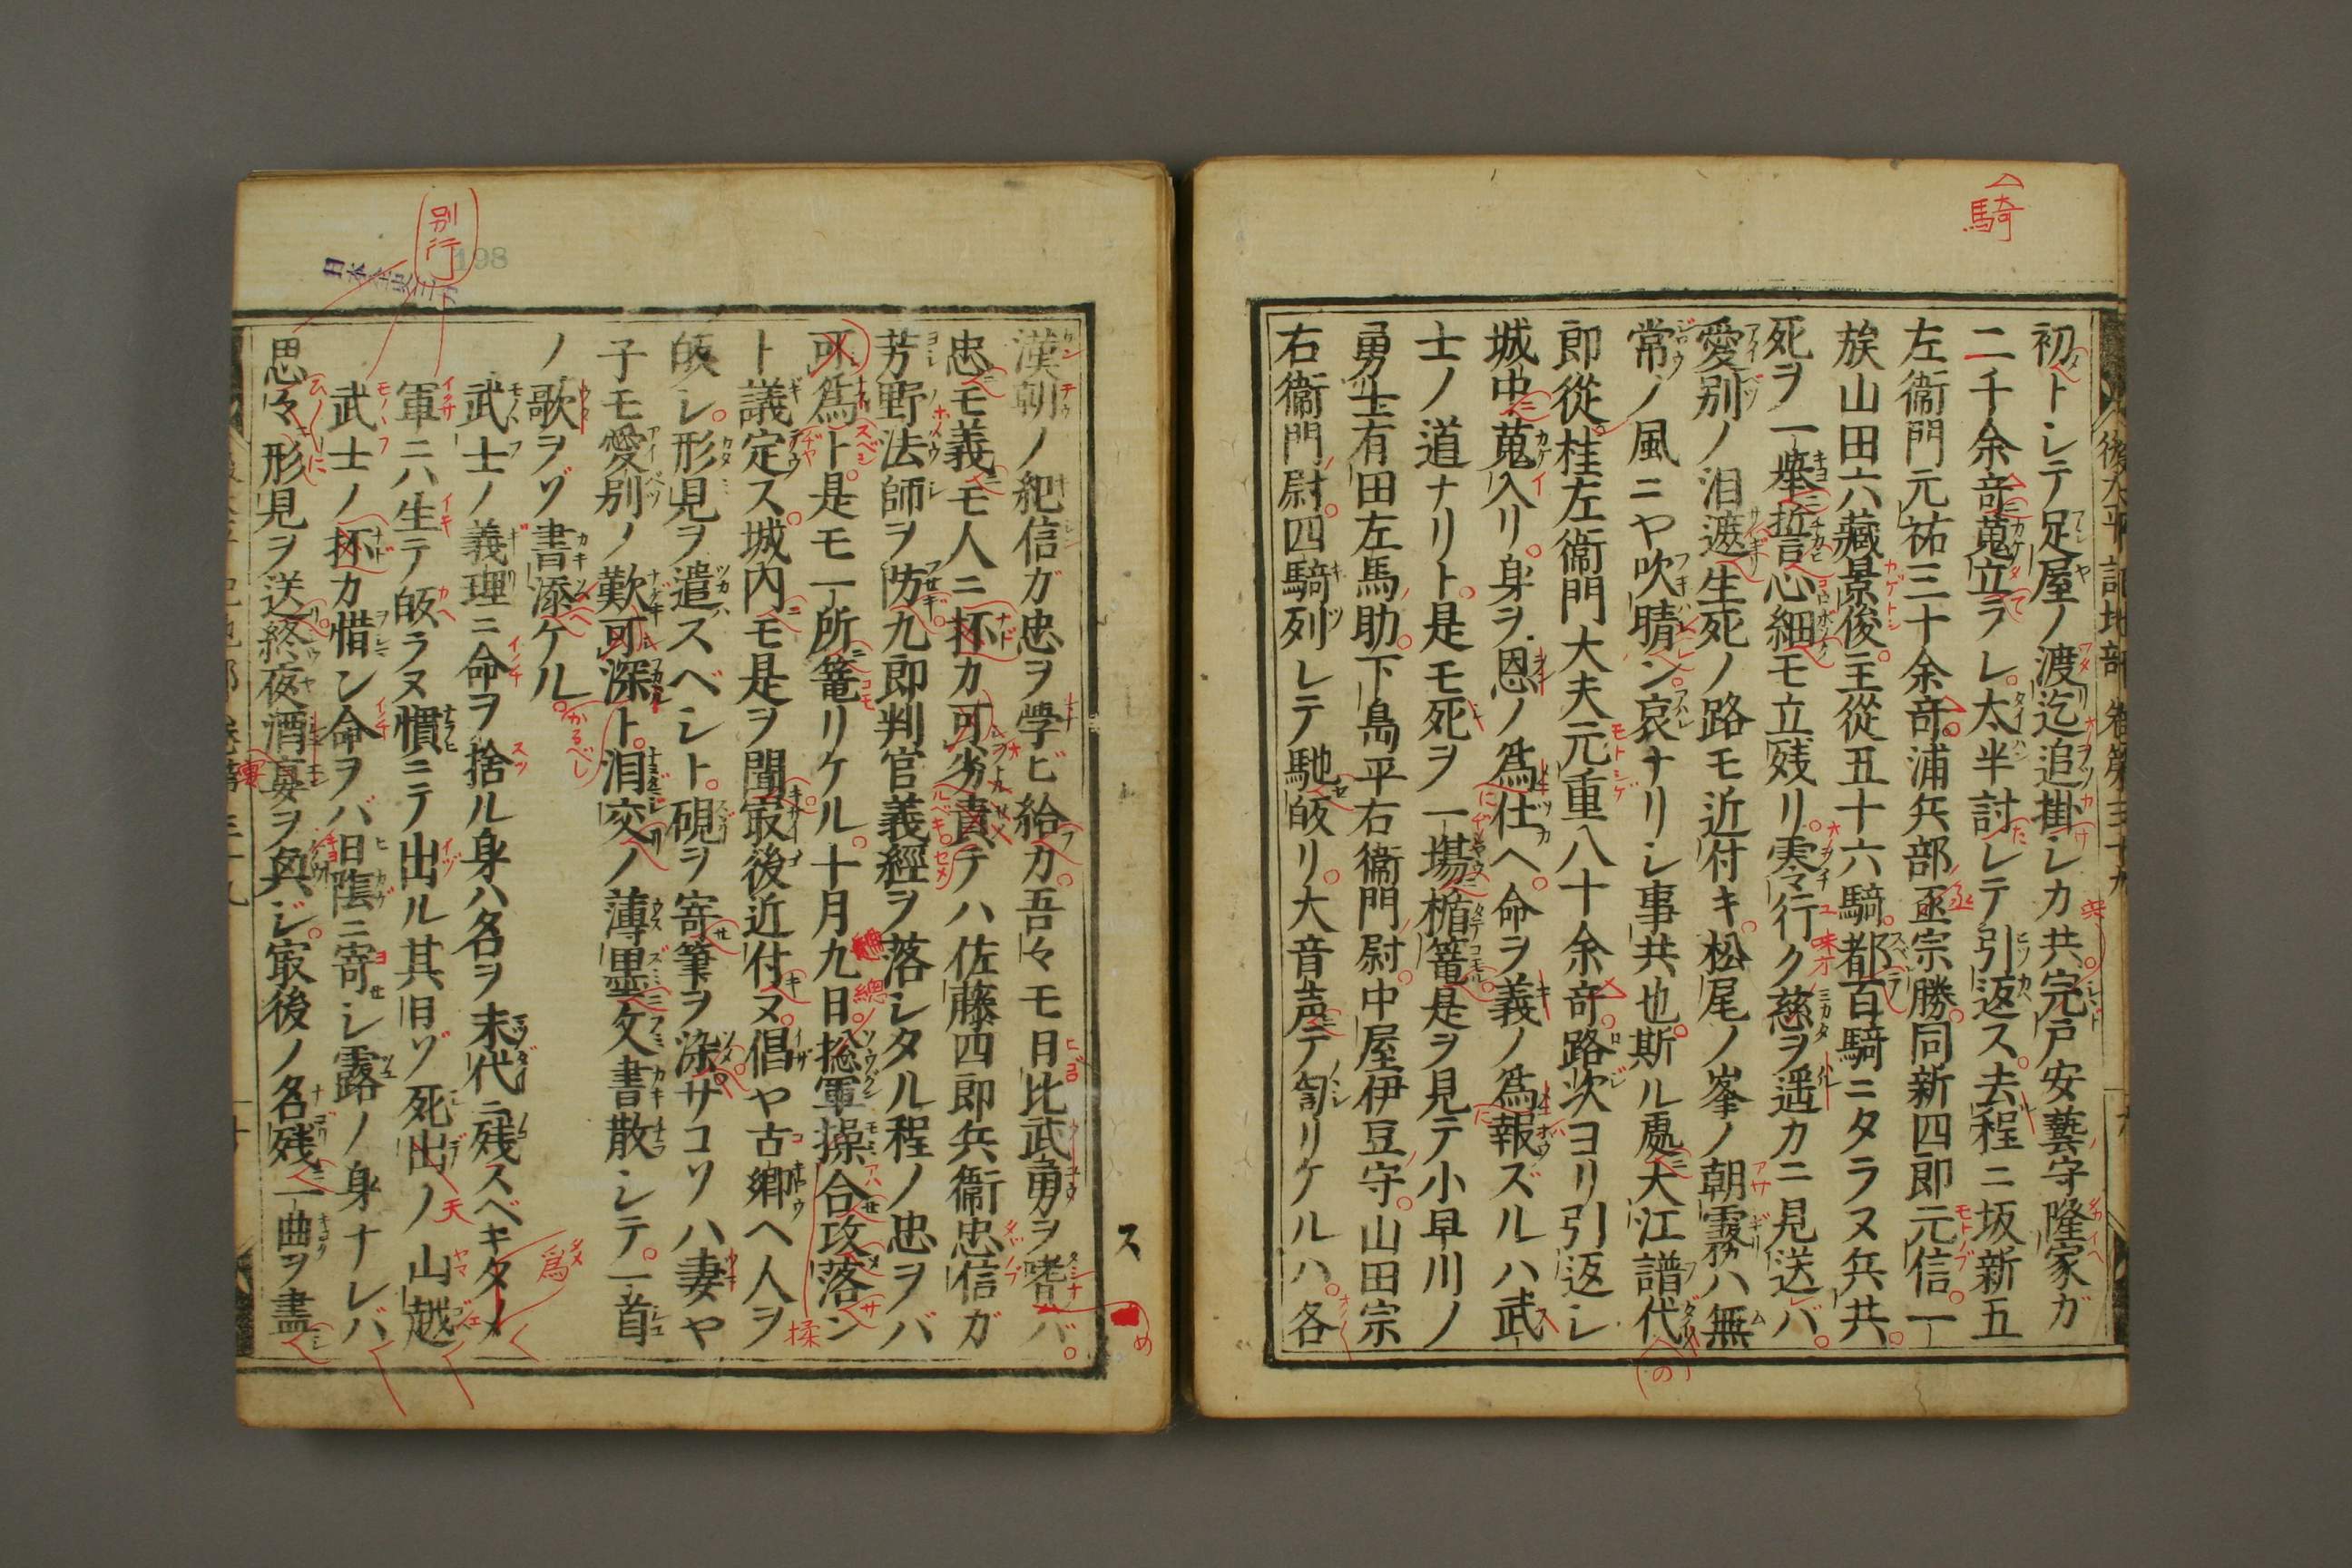 △騎
後太平記地部 卷第三十九
初トシテ足屋ノ渡迄追掛シカ共完戸安藝守隆家ガ
二千余竒蒐立ラレ太半討レテ引返ス去程ニ坂新五
左衞門元祐三十余竒浦兵部丞宗勝同新四郎元信一
族山田六藏景俊主從五十六騎都百騎ニタラヌ兵共
死ヲ一擧誓心細モ立残リ零行ク慈ヲ遥カニ見送バ
愛別ノ泪遮生死ノ路モ近付キ松尾ノ峯ノ朝霧ハ無
常ノ風ニヤ吹晴ン哀ナリシ事共也斯ル處大江譜代
郎從桂左衞門大夫元重八十余竒路次ヨリ引返シ
城中蒐入リ身ヲ恩ノ爲仕ヘ命ヲ義ノ爲報ズルハ武
士ノ道ナリト是モ死ヲ一塲楯篭是ヲ見テ小早川ノ
勇士有田左馬助下島平右衞門尉中屋伊豆守山田宗
右衞門尉四騎列レテ馳皈リ大音声テ訇リケルハ各
ス
漢朝ノ紀信ガ忠ヲ學ビ給カ吾々モ日比武勇ヲ嗜バ
忠モ義モ人ニ抔カ可劣責テハ佐藤四郎兵衞忠信ガ
芳野法師ヲ防九郎判官義經ヲ落シタル程ノ忠ヲバ
可爲ト是モ一所篭リケル十月九日捴軍操合攻落ン
ト議定ス城内モ是ヲ聞㝡後近付ヌ倡ヤ古郷ヘ人ヲ
皈シ形見ヲ遣スベシト硯ヲ寄筆ヲ染サコソハ妻ヤ
子モ愛別ノ歎可深ト泪交ノ薄墨文書散シテ一首
ノ歌ヲゾ書添ケル
武士ノ義理ニ命ヲ捨ル身ハ名ヲ末代ニ残スベキタメ
軍ニハ生テ皈ラヌ慣ニテ出ル其日ゾ死出ノ山越
武士ノ抔カ惜ン命ヲバ日蔭ニ寄シ露ノ身ナレバ
思々形見ヲ送終夜酒宴ヲ興ジ㝡後ノ名残一曲ヲ盡
別行
198